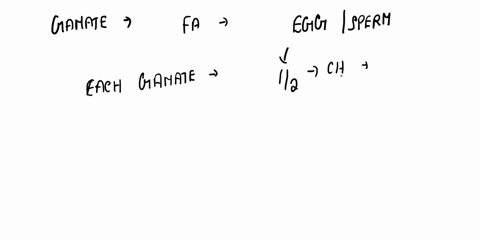 GANATE → FA → EGG / SPERM
EACH GANATE → 1/2 → CH →